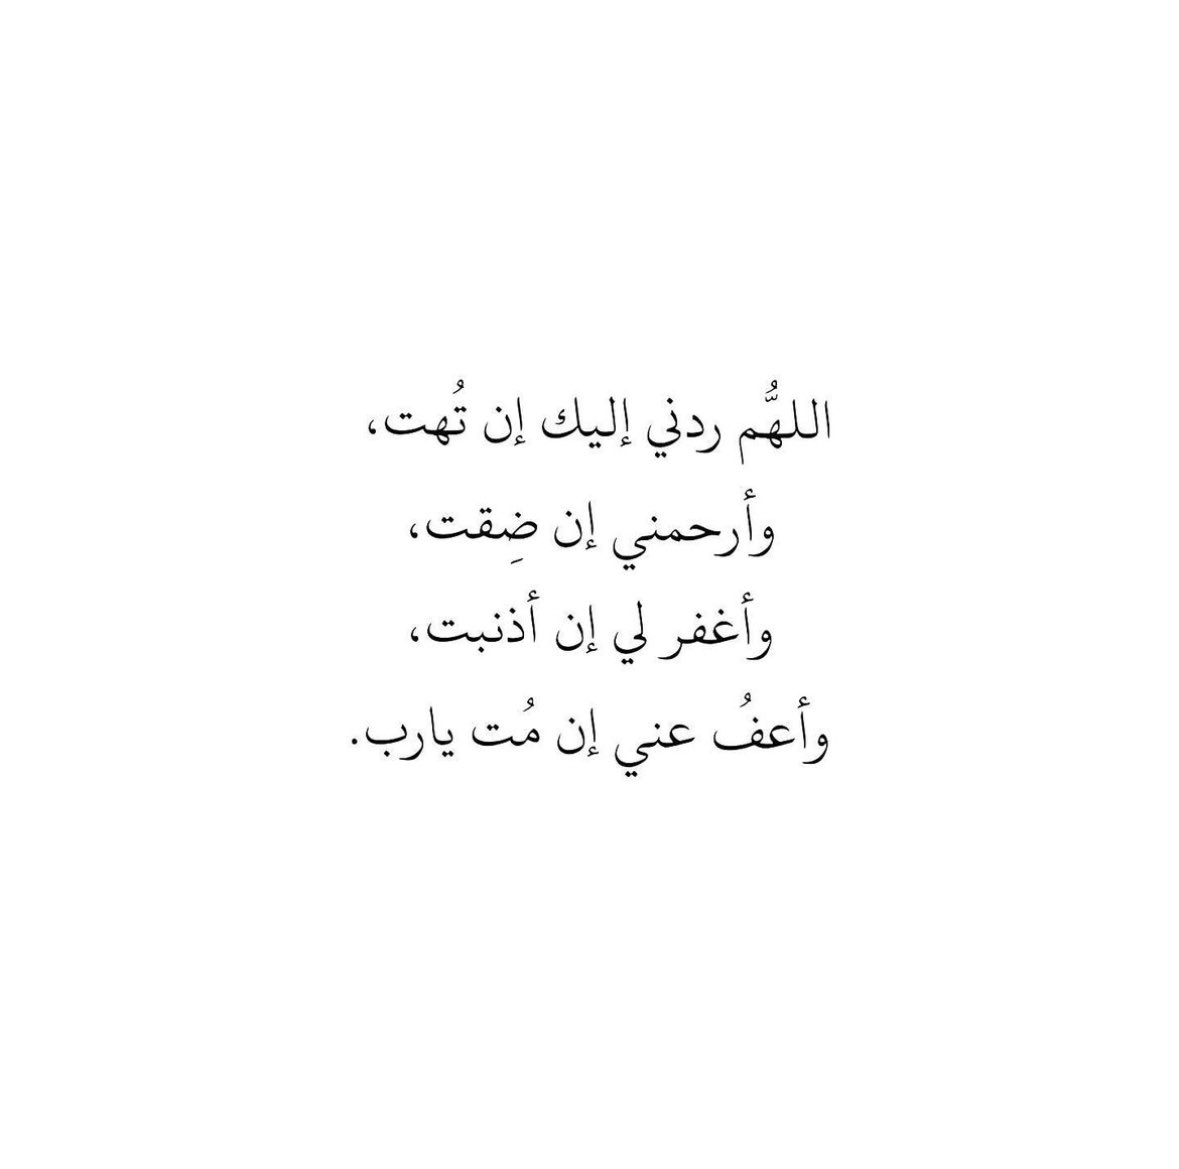 اللهُّم ردني إليك إن تُهت،
وأرحمني إن ضِقت،
وأغفر لي إن أذنبت،
وأعفُ عني إن مُت يارب.